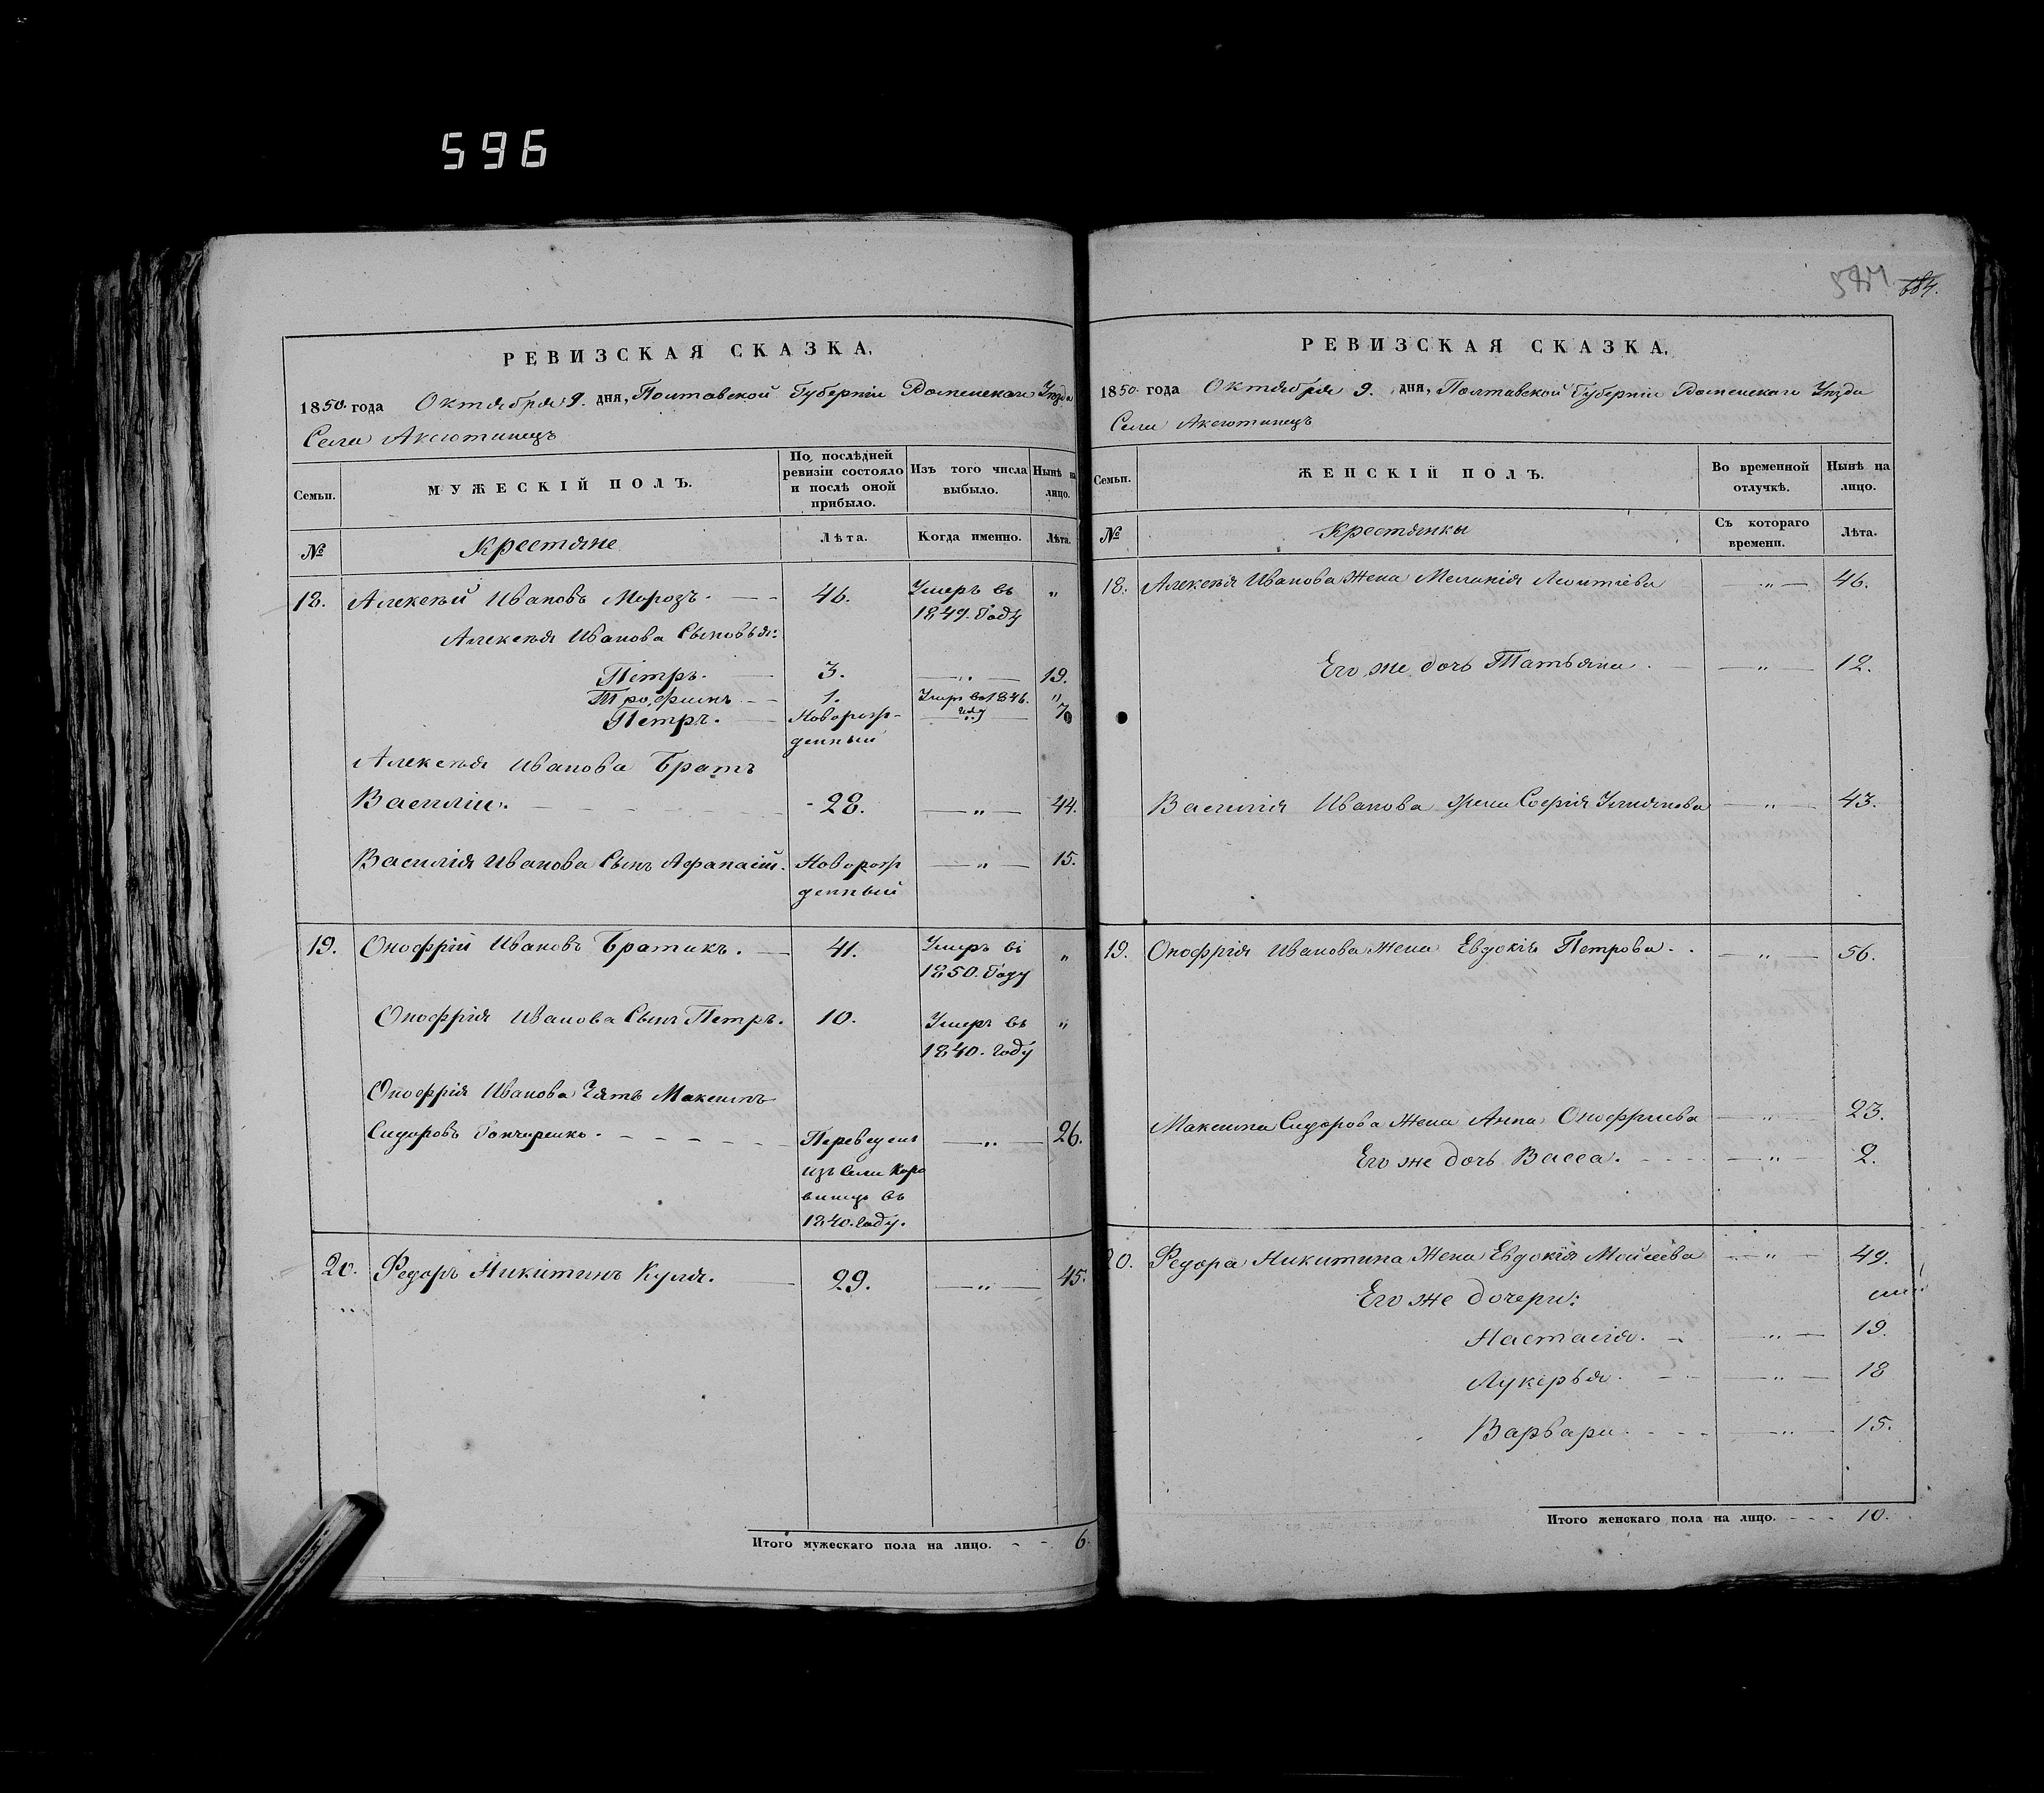 596
684.
РЕВИЗСКАЯ СКАЗКА.
1850. года Октября 9. дня, Полтавской Губерніи Роменскаго Уѣзда
Села Аксютинецъ
Семьи.
МУЖЕСКІЙ ПОЛЪ.
По послѣдней ревизіи состояло и послѣ оной прибыло.
Изъ того числа выбыло.
Нынѣ на лицо.
№
Крестяне
Лѣта.
Когда именно.
Лѣта.
18. Алексѣй Ивановъ Морозъ. 46. Умеръ въ 1849. Году "
Алексѣя Иванова Сыновья:
Петръ. 3. " 19.
Трофимъ 1. Умеръ въ 1846. году "
Петръ. Новорожденный " 7
Алексѣя Иванова Братъ
Василій. 28. " 44.
Василія Иванова Сынъ Афанасій. Новорожденный " 15.
19. Онофрій Ивановъ Братикъ. 41. Умеръ въ 1850. Году "
Онофрія Иванова Сынъ Петръ. 10. Умеръ въ 1840. Году "
Онофрія Иванова Зять Максимъ
Сидоровъ Гончаренко. Переведенъ изъ Села Коровинецъ въ 1840. Году. " 26.
20. Федоръ Никитинъ Куля. 29. " 45.
Итого мужескаго пола на лицо. 6.
РЕВИЗСКАЯ СКАЗКА.
1850. года Октября 9. дня, Полтавской Губерніи Роменскаго Уѣзда
Села Аксютинецъ
Семьи.
ЖЕНСКІЙ ПОЛЪ.
Во временной отлучкѣ.
Нынѣ на лицо.
№
Крестянки
Съ котораго времени.
Лѣта.
18. Алексѣя Иванова Жена Меланія Леонтіева " 46.
Его же дочь Татьяна. " 12.
Василія Иванова жена Софія Ульянова " 43.
19. Онофрія Иванова Жена Евдокія Петрова. " 56.
Максима Сидорова Жена Анна Онофріева " 23.
Его же дочь Васса. " 2.
20. Федора Никитина Жена Евдокія Мойсеева " 49.
Его же дочери:
Настасія. " 19.
Лукерья. " 18
Варвара. " 15.
Итого женскаго пола на лицо. 10.